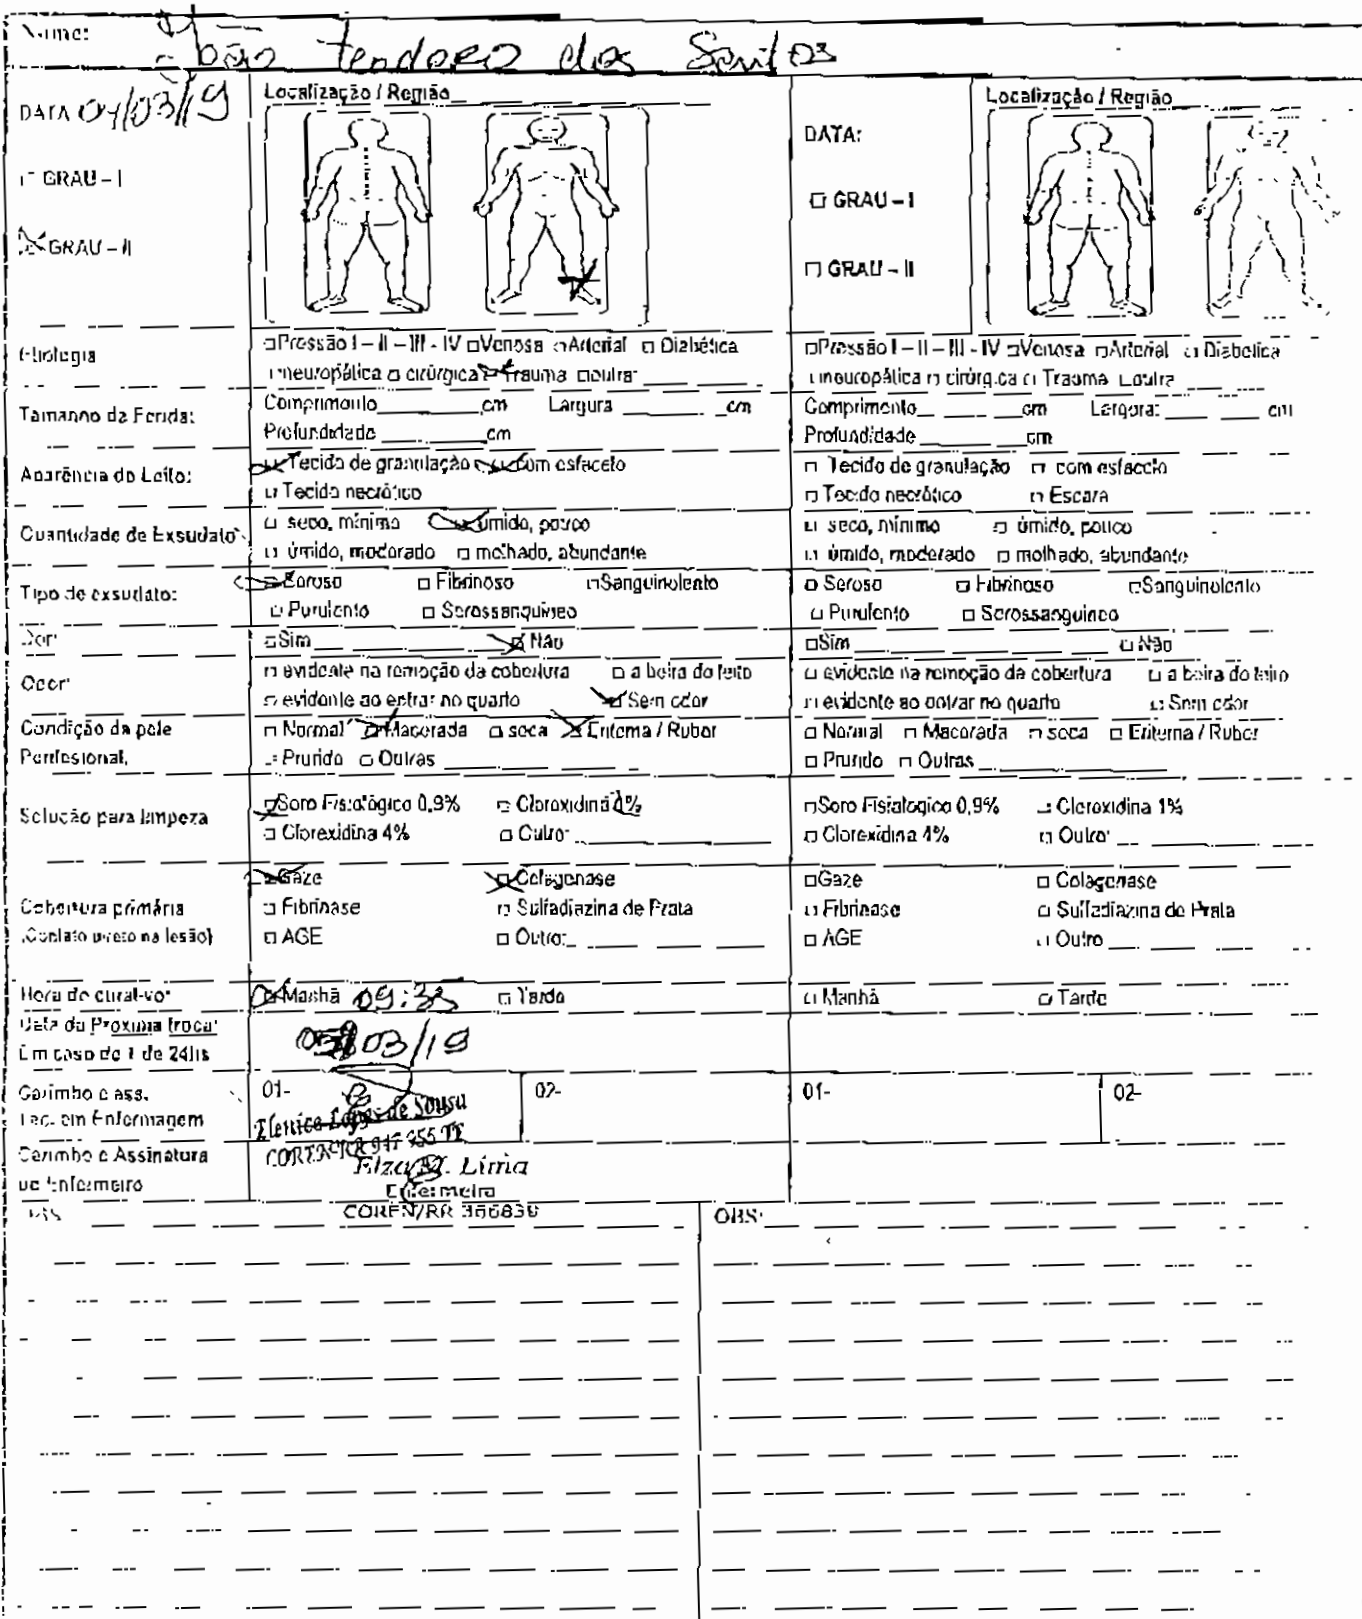 Nome: João Teodoro dos Santos
DATA 04/03/19
Localização / Região
GRAU - I
GRAU - II
DATA:
Localização / Região
GRAU - I
GRAU - II
Etiologia
Pressão I - II - III - IV Venosa Arterial Diabética
neuropática cirúrgica Trauma outra:
Pressão I - II - III - IV Venosa Arterial Diabética
neuropática cirúrgica Trauma Outra
Tamanho da Ferida:
Comprimento cm Largura cm
Profundidade cm
Comprimento cm Largura: cm
Profundidade cm
Aparência do Leito:
Tecido de granulação com esfacelo
Tecido necrótico
Tecido de granulação com esfacelo
Tecido necrótico Escara
Quantidade de Exsudato:
seco, mínimo úmido, pouco
úmido, moderado molhado, abundante
seco, mínimo úmido, pouco
úmido, moderado molhado, abundante
Tipo de exsudato:
Seroso Fibrinoso Sanguinolento
Purulento Serossanguíneo
Seroso Fibrinoso Sanguinolento
Purulento Serossanguíneo
Dor:
Sim Não
Sim Não
Odor:
evidente na remoção da cobertura a beira do leito
evidente ao entrar no quarto Sem odor
evidente na remoção da cobertura a beira do leito
evidente ao entrar no quarto Sem odor
Condição da pele
Perilesional.
Normal Macerada seca Eritema / Rubor
Prurido Outras
Normal Macerada seca Eritema / Rubor
Prurido Outras
Solução para limpeza
Soro Fisiológico 0,9% Cloroxidina 1%
Clorexidina 4% Outro:
Soro Fisiologico 0,9% Cloroxidina 1%
Clorexidina 4% Outro:
Cobertura primária
(Contato direto na lesão)
Gaze Colagenase
Fibrinase Sulfadiazina de Prata
AGE Outro:
Gaze Colagenase
Fibrinase Sulfadiazina de Prata
AGE Outro
Hora do curativo:
Manhã 09:35 Tarde
Manhã Tarde
Data da Próxima troca:
Em caso de + de 24hs
03/19
Carimbo e ass.
Tec. em Enfermagem
01- 02-
01- 02-
Lopes de Sousa
Carimbo e Assinatura
do Enfermeiro
Elza M. Lima
Enfermeira
COREN/RR 366830
OBS
OBS: